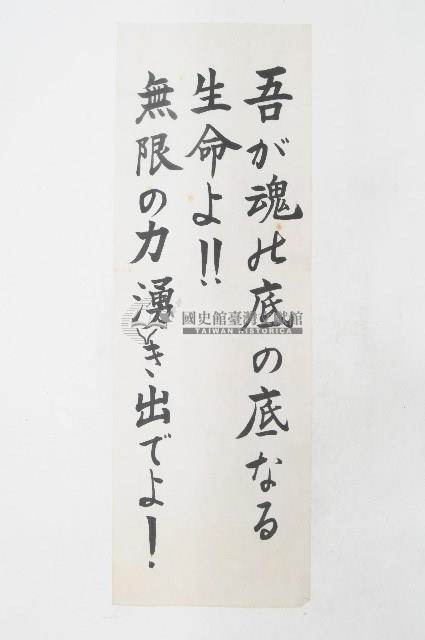 吾が魂の底の底なる
生命よ!!
無限の力湧き出でよ!
國史館臺灣文獻館
TAIWAN HISTORICA